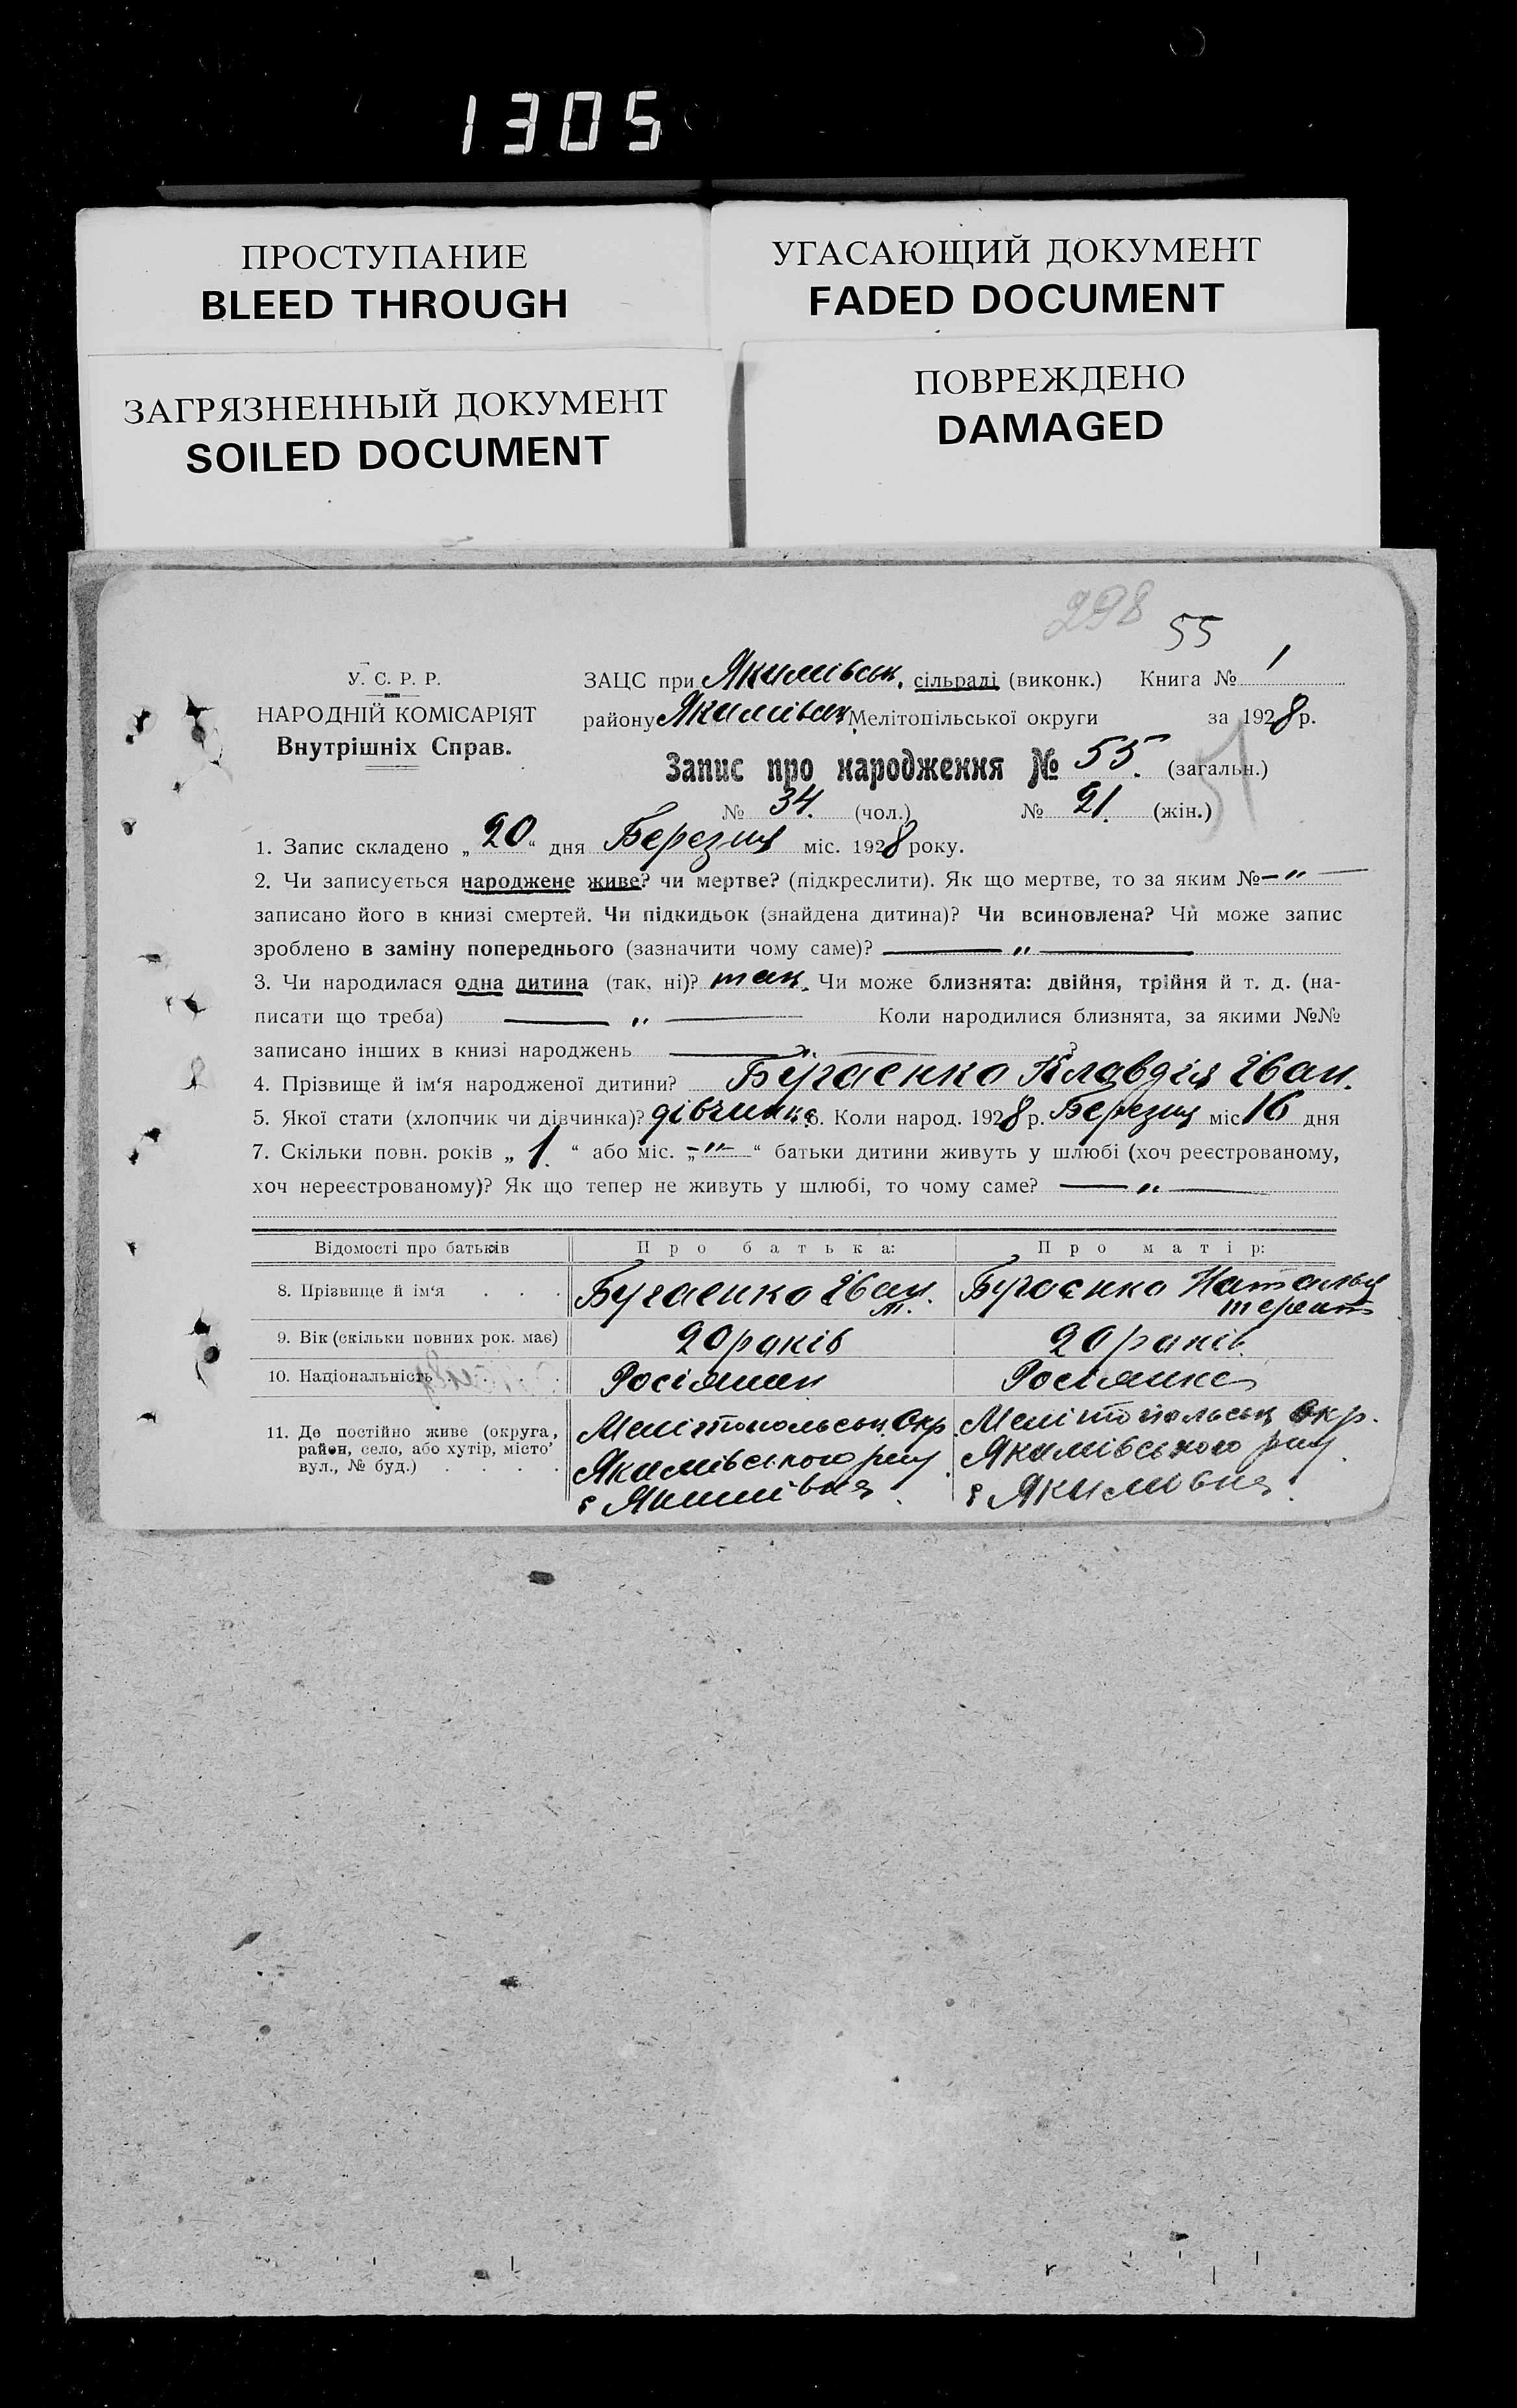 1305
ПРОСТУПАНИЕ
BLEED THROUGH
УГАСАЮЩИЙ ДОКУМЕНТ
FADED DOCUMENT
ЗАГРЯЗНЕННЫЙ ДОКУМЕНТ
SOILED DOCUMENT
ПОВРЕЖДЕНО
DAMAGED
298 55
У. С. Р. Р.
НАРОДНІЙ КОМІСАРІЯТ
Внутрішніх Справ.
ЗАЦС при Якимівськ. сільраді (виконк.) Книга № 1
району Якимівськ Мелітопільської округи за 1928 р.
Запис про народження № 55. (загальн.)
51
№ 34. (чол.) № 21. (жін.)
1. Запис складено „20“ дня Березня міс. 1928 року.
2. Чи записується народжене живе? чи мертве? (підкреслити). Як що мертве, то за яким № — " —
записано його в книзі смертей. Чи підкидьок (знайдена дитина)? Чи всиновлена? Чи може запис
зроблено в заміну попереднього (зазначити чому саме)? — " —
3. Чи народилася одна дитина (так, ні)? так. Чи може близнята: двійня, трійня й т. д. (на-
писати що треба) — " — Коли народилися близнята, за якими №№
записано інших в книзі народжень — " — ?
4. Прізвище й ім‘я народженої дитини? Бугаенко Клавдія Іван.
5. Якої стати (хлопчик чи дівчинка)? дівчинка 6. Коли народ. 1928 р. Березня міс 16 дня
7. Скільки повн. років „1.“ або міс. „—"—“ батьки дитини живуть у шлюбі (хоч реєстрованому,
хоч нереєстрованому)? Як що тепер не живуть у шлюбі, то чому саме? — " —
Відомості про батьків Про батька: Про матір:
8. Прізвище й ім‘я . . . Бугаенко Іван. Т. Бугаєнко Наталья Терент
9. Вік (скільки повних рок. має) 20 років 20 років
10. Національність . . . . Росіянин Росіянка
11. Де постійно живе (округа, район, село, або хутір, місто’ вул., № буд.) . . . .
Мелітопольськ. Окр. Мелітопольськ Окр.
Якимівського рну Якимівського рну.
с Якимівка. с Якимовка.